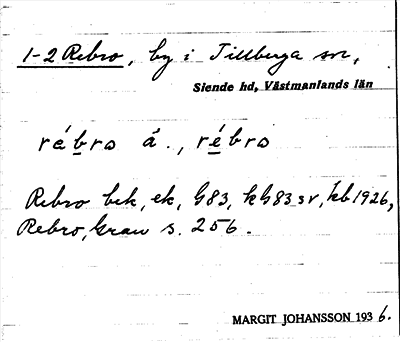 1-2 Rebro, by i Tillberga sn,
Siende hd, Västmanlands län
rébro å., rébro
Rebro bek, ek, G83, kG83 sv, kb 1926,
Rebro, Grau s. 256.
MARGIT JOHANSSON 1936.